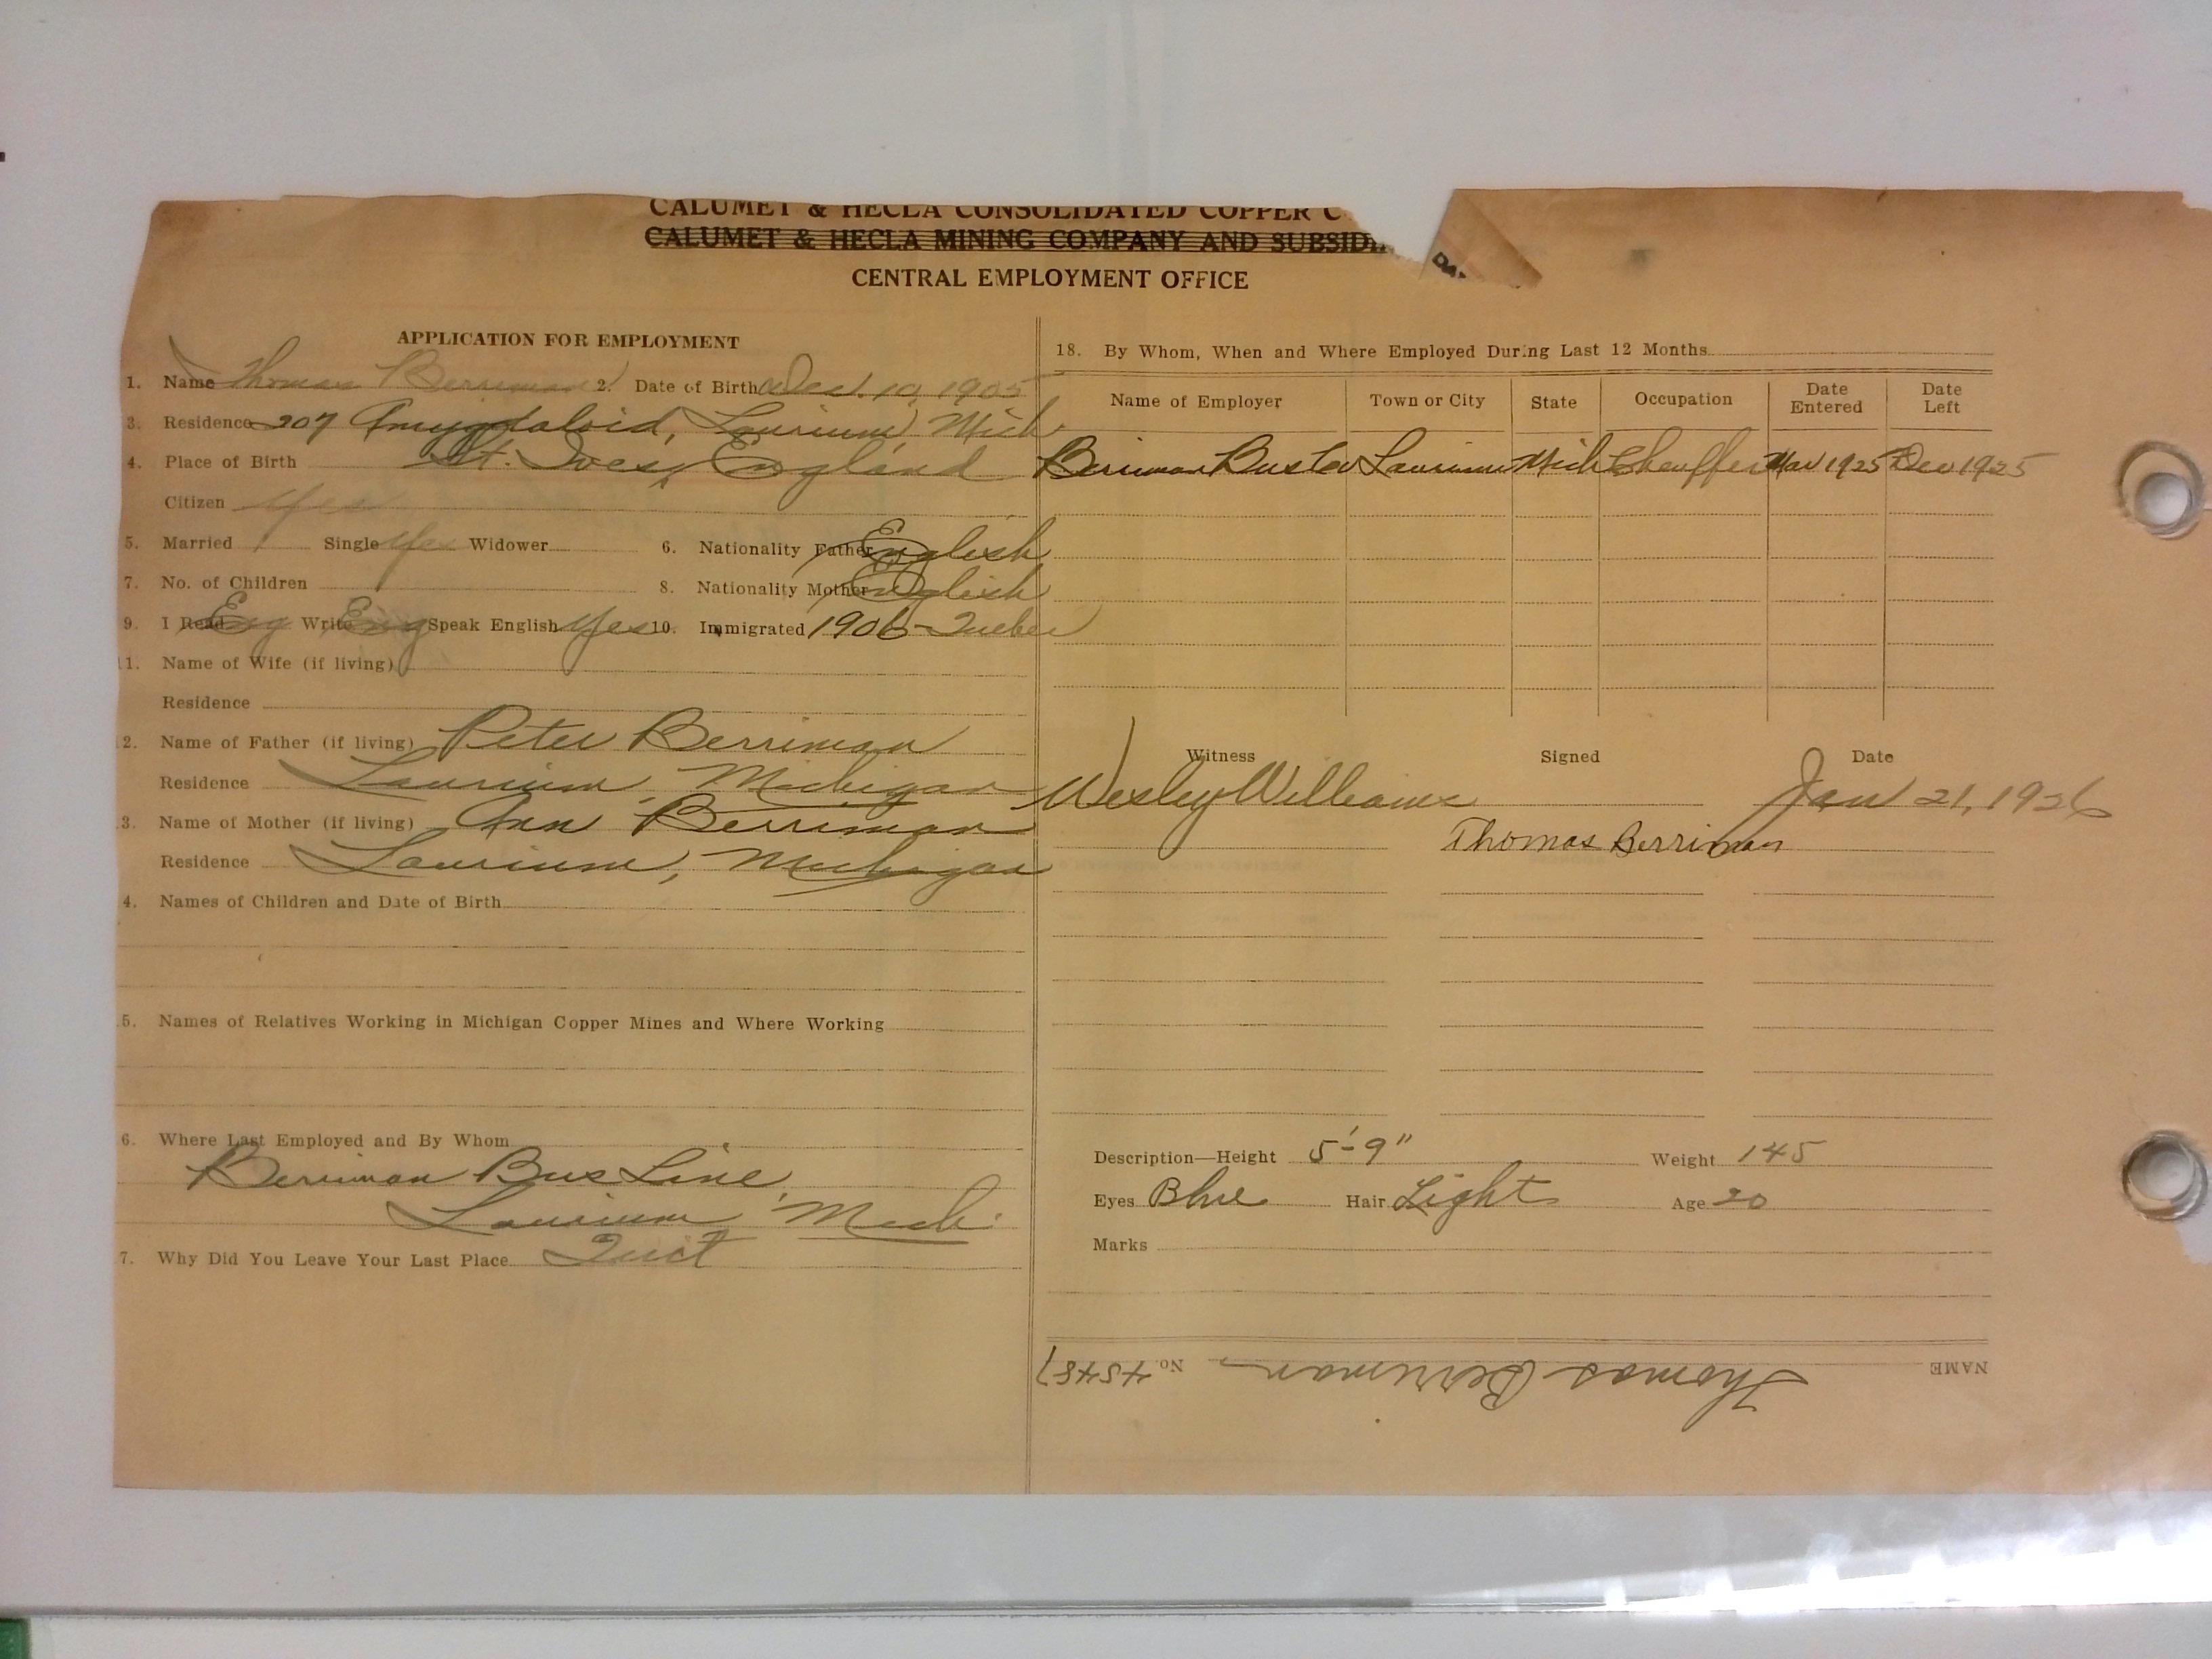 CALUMET & HECLA CONSOLIDATED COPPER C
CALUMET & HECLA MINING COMPANY AND SUBSIDI
DA
CENTRAL EMPLOYMENT OFFICE
APPLICATION FOR EMPLOYMENT
1. Name Thomas Berriman 2. Date of Birth Dec. 10, 1905
3. Residence 207 Amygdaloid, Laurium, Mich.
4. Place of Birth St. Ives, England
Citizen Yes
5. Married Single Yes Widower 6. Nationality Father English
7. No. of Children 8. Nationality Mother English
9. I Read Eng Write Eng Speak English Yes 10. Immigrated 1906 - Quebec
11. Name of Wife (if living)
Residence
12. Name of Father (if living) Peter Berriman
Residence Laurium, Michigan
3. Name of Mother (if living) Ann Berriman
Residence Laurium, Michigan
4. Names of Children and Date of Birth
5. Names of Relatives Working in Michigan Copper Mines and Where Working
6. Where Last Employed and By Whom
Berriman Bus Line,
Laurium, Mich.
7. Why Did You Leave Your Last Place Quit
18. By Whom, When and Where Employed During Last 12 Months
Name of Employer Town or City State Occupation Date Entered Date Left
Berriman Bus Laurium Mich Chauffer Mar 1925 Dec 1925
Witness Signed Date
Wesley Williams Jan 21, 1926
Thomas Berriman
Description—Height 5'-9" Weight 145
Eyes Blue Hair Light Age 20
Marks
NAME Thomas Berriman No. 45487